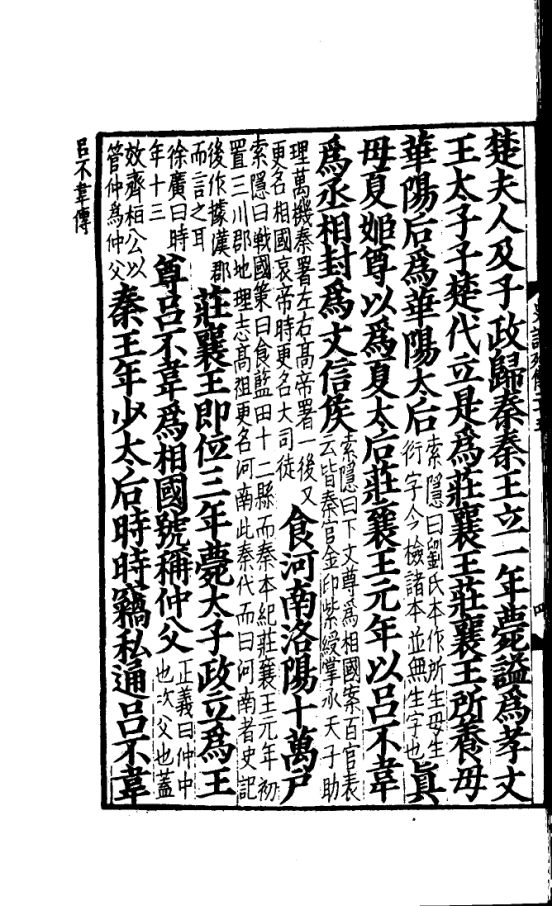 楚夫人及子政歸秦秦王立一年薨謚爲孝文
王太子子楚代立是爲莊襄王莊襄王所養母
華陽后爲華陽太后索隱曰劉氏本作所生母生衍字今檢諸本並無生字也真
母夏姬尊以爲夏太后莊襄王元年以呂不韋
爲丞相封爲文信侯索隱曰下文尊爲相國案百官表云皆秦官金印紫綬掌承天子助
理萬機秦署左右高帝署一後又更名相國哀帝時更名大司徒食河南洛陽十萬戶
索隱曰戰國策曰食藍田十二縣而秦本紀莊襄王元年初置三川郡地理志高祖更名河南此秦代而曰河南者史記
後作據漢郡而言之耳莊襄王即位三年薨太子政立爲王
徐廣曰時年十三尊呂不韋爲相國號稱仲父正義曰仲中也次父也蓋
效齊桓公以管仲爲仲父秦王年少太后時時竊私通呂不韋
呂不韋傳